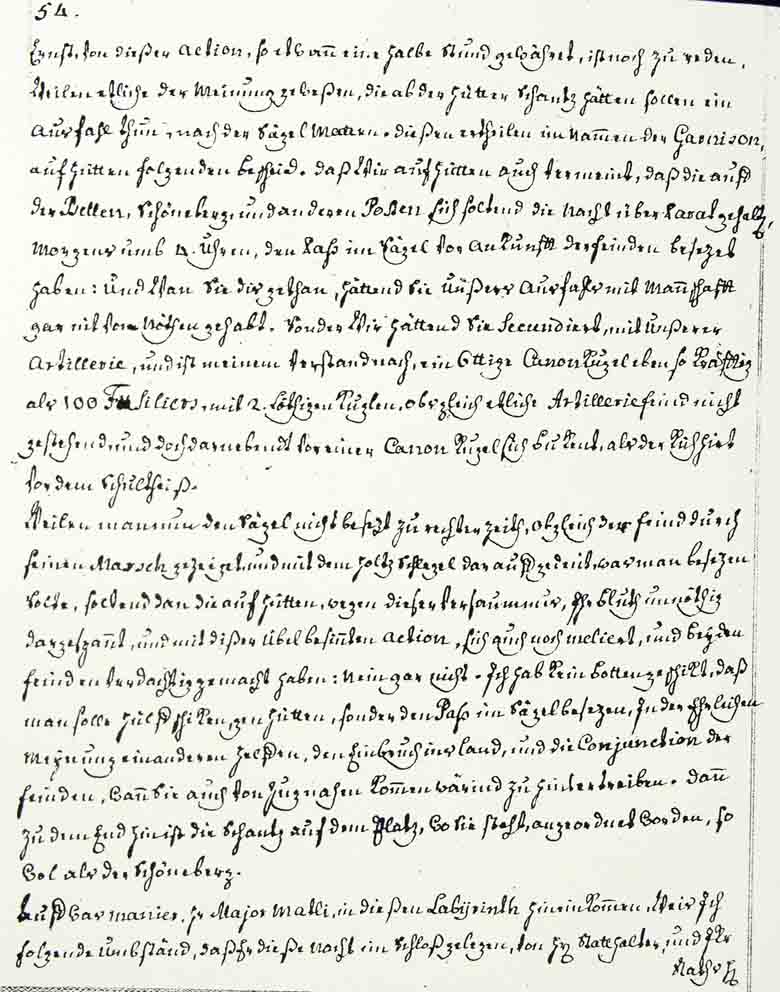 54.
Ernst. Von dießer Action, so etwañ eine halbe Stund gewähret, ist noch zu reden,
Weilen etliche der Meinung geweßen, die ab der Hütter Schantz hätten sollen ein
Ausfahl thun, nach der Sägel Matten. dießen ertheilen im Namen der Garnison,
auf Hütten folgenden bescheid. daß Wir auf Hütten auch vermeint, daß die auf
der Bellen, Schöneberg, und anderen Posten sich soltend die Nacht über parat gehalt,
Morgens umb 4. Uhren, den Paß im Sägel vor Ankunfft der feinden besezet
haben: Und Wan Sie dis gethan, hättend Sie Unßers Ausfahls mit Mannschafft
gar nit von Nöthen gehabt. Sonder Wir hättend Sie Secundiert, mit Unßerer
Artillerie, und ist meinem Verstand nach, ein 6ttige Canon Kugel eben so kräfftig
als 100 Fusiliers, mit 2. Löthigen Kuglen, obgleich etliche Artillerie feind nicht
gestehend, und doch darnebendt vor einer Canon Kugel sich bukent, als der Kühhirt
vor dem Schultheiß.
Weilen man nun den Sägel nicht besezt zu rechter Zeith, obgleich der feind durch
seinen Marsch gezeiget, und mit dem Holtz Schlegel darauf gedeut, was man besezen
solte, soltend dan die auf Hütten, wegen dieser Versaumnus, Ihr Bluth unnöthig
dargespannt, und mit dißer übel besinten Action, sich auch noch meliert, und bey den
feinden verdachtig gemacht haben: Nein gar nicht. Ich hab kein Botten geschikt, daß
man solle Hülf schiken, gen Hütten, sonder den Paß im Sägel besezen, In der Ehrlichen
Meynung einanderen helfen, den Einbruch ins Land, und die Conjunction der
feinden, Wann Sie auch von Zugnahen kommen wärind zu hintertreiben. Dann
zu dem End hin ist die Schantz auf dem Platz, Wo Sie steht, angeordnet Worden, so
Wol als der Schöneberg.
Auf Was manier, Hr Major Matli, in dießen Labyrinth hinein kommen, Weis Ich
folgende Umbständ, daß Er dieße Nacht im Schloß gelegen, von Hr Statthalter, und
Raths H